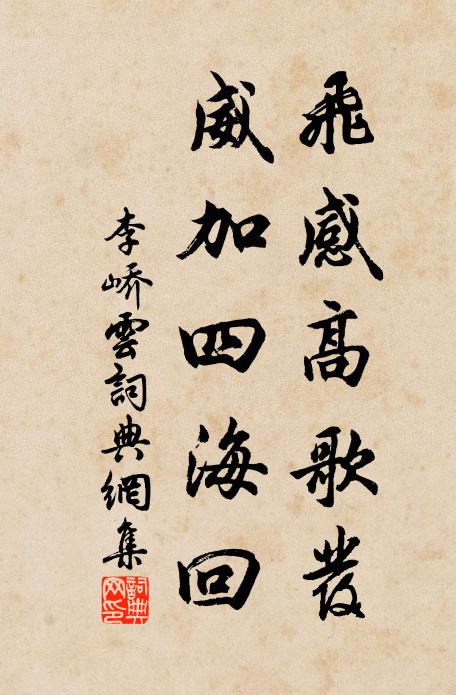 飛感高歌發
威加四海回
李嶠雲詞典網集
詞典網印